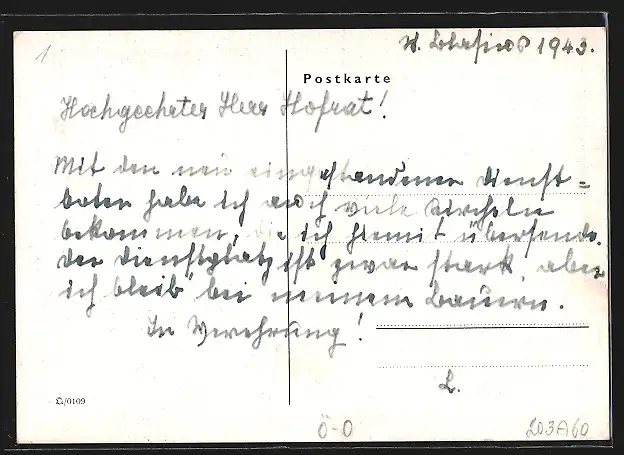 1
St. Blasius 1943.
Postkarte
Hochgeehrter Herr Hofrat!
Mit den neu eingestandenen Dienst=
boten habe ich auch viele
bekommen, die ich hiemit übersende.
Der Dienstplatz ist zwar stark, aber
ich bleib' bei meinem Bauern.
In Verehrung!
L.
/0109
Ö-O
203A60